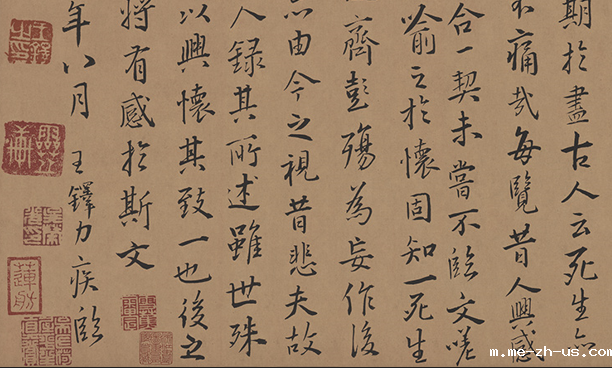 期於盡古人云死生亦
不痛哉每覽昔人興感
合一契未嘗不臨文嗟
喻之於懷固知一死生
齊彭殤為妄作後
亦由今之視昔悲夫故
人錄其所述雖世殊
以興懷其致一也後之
將有感於斯文
年八月 王鐸力疾臨
m.me-zh-us.com